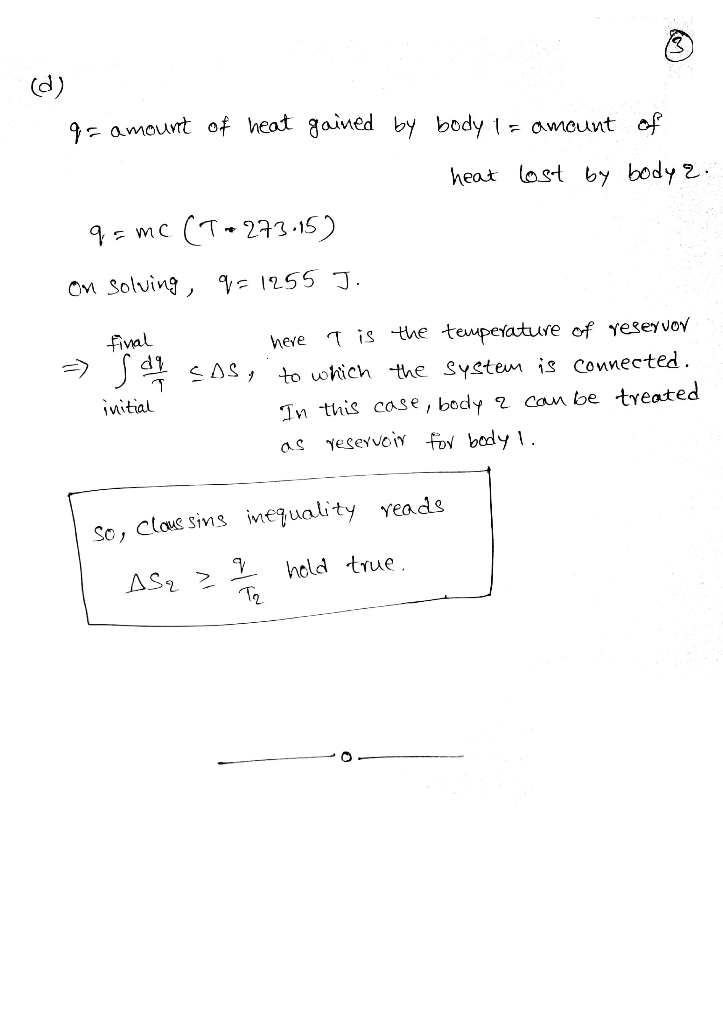 ③
(d)
q = amount of heat gained by body 1 = amount of
heat lost by body 2.
q = mc (T - 273.15)
on solving, q = 1255 J.
⇒ ∫ initial final dq/T ≤ ΔS, here T is the temperature of reservor
to which the system is connected.
In this case, body 2 can be treated
as reservoir for body 1.
So, Claussins inequality reads
ΔS2 ≥ q/T2 hold true.